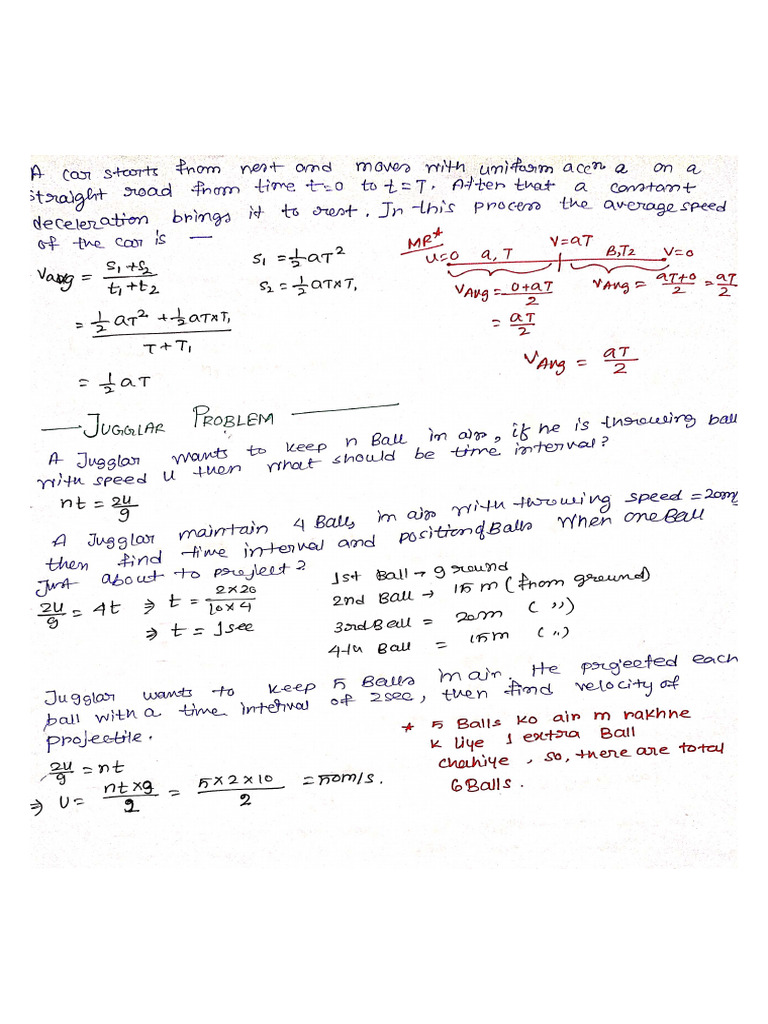 A car starts from rest and moves with uniform accn a on a
straight road from time t=0 to t=T. After that a constant
deceleration brings it to rest. In this process the average speed
of the car is —
Vavg = (S₁+S₂)/(t₁+t₂)
S₁ = ½aT²
S₂ = ½aT×T₁
= (½aT² + ½aT×T₁)/(T+T₁)
= ½aT
MR*
u=0 a,T V=aT B,T2 V=0
VAvg = (0+aT)/2
= aT/2
VAvg = (aT+0)/2 = aT/2
VAvg = aT/2
JUGGLAR PROBLEM
A Jugglar wants to keep n Ball in air, if he is throwing ball
with speed u then what should be time interval?
nt = 2u/g
A Jugglar maintain 4 Balls in air with throwing speed = 20m/s
then find time interval and position of Balls when one Ball
Just about to project?
2u/g = 4t ⇒ t = (2×20)/(10×4)
⇒ t = 1sec
1st Ball → ground
2nd Ball → 15m (from ground)
3rd Ball = 20m ( ,, )
4th Ball = 15m ( ,, )
Jugglar wants to keep 5 Balls in air. He projected each
ball with a time interval of 2sec, then find velocity of
projectile.
2u/g = nt
⇒ U = (nt×g)/2 = (5×2×10)/2 = 50m/s.
* 5 Balls ko air m rakhne
k liye 1 extra Ball
chahiye, so, there are total
6Balls.